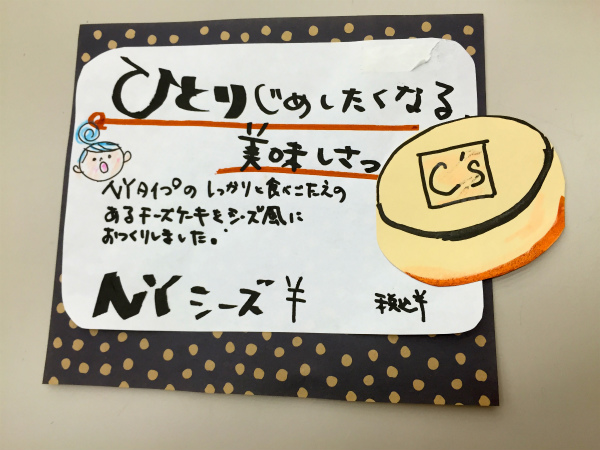 ひとりじめしたくなる
美味しさっ
NYタイプの しっかりと食べごたえの
あるチーズケーキをシーズ風に
おつくりしました。
C's
NYシーズ ¥
税込¥